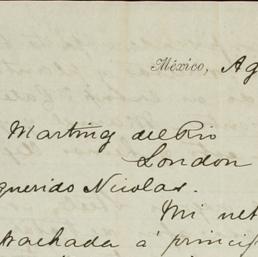 México, Ag
Martinez del Rio
London
querido Nicolas.
Mi net
trachada á princip